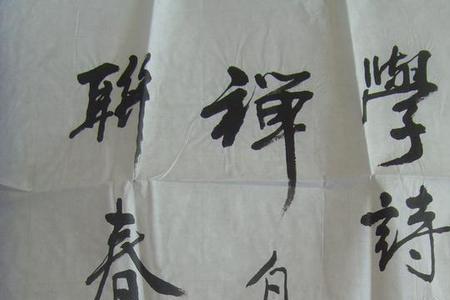 學詩
禪
聯春